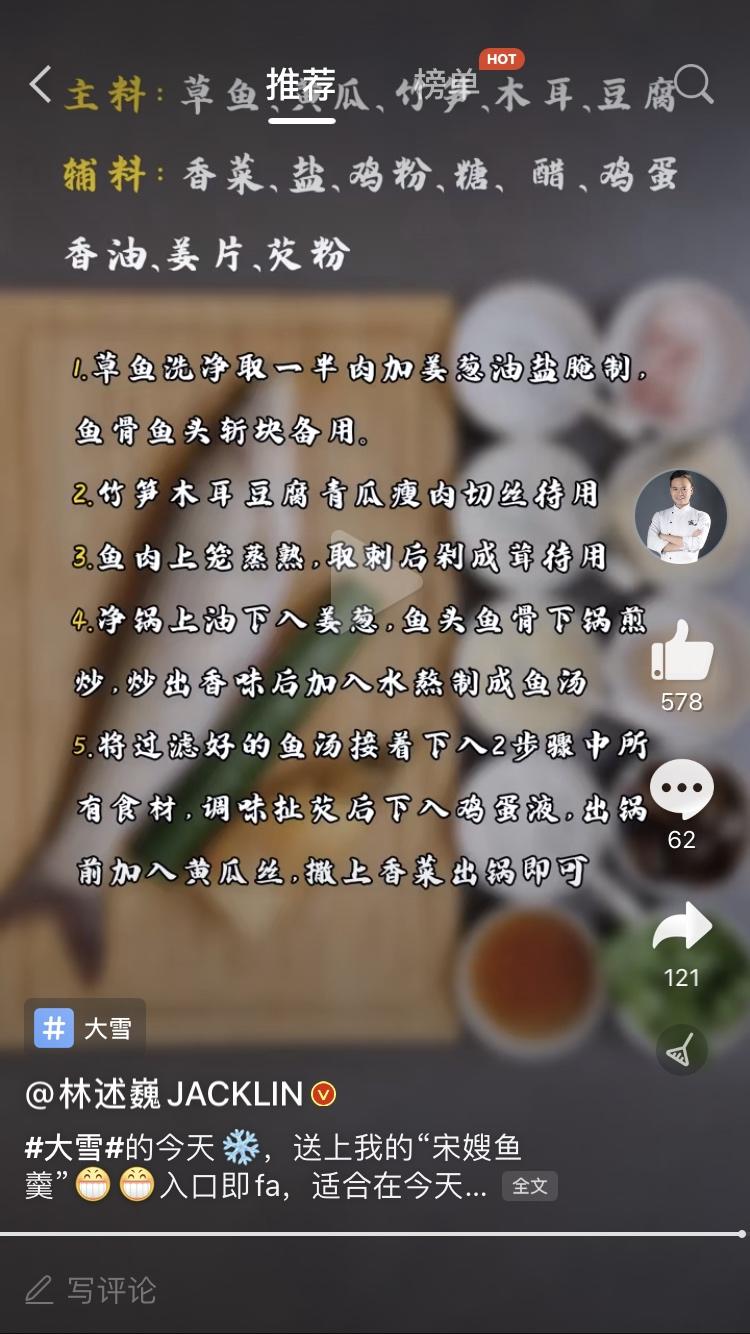 推荐
榜单
HOT
主料：草鱼、黄瓜、竹笋、木耳、豆腐
辅料：香菜、盐、鸡粉、糖、醋、鸡蛋
香油、姜片、芡粉
1.草鱼洗净取一半肉加姜葱油盐腌制，
鱼骨鱼头斩块备用。
2.竹笋木耳豆腐青瓜瘦肉切丝待用
3.鱼肉上笼蒸熟，取刺后剁成茸待用
4.净锅上油下入姜葱，鱼头鱼骨下锅煎
炒，炒出香味后加入水熬制成鱼汤
5.将过滤好的鱼汤接着下入2步骤中所
有食材，调味扯芡后下入鸡蛋液，出锅
前加入黄瓜丝，撒上香菜出锅即可
578
62
121
# 大雪
@林述巍JACKLIN
#大雪#的今天❄️，送上我的“宋嫂鱼
羹”😁😁入口即fa，适合在今天... 全文
写评论